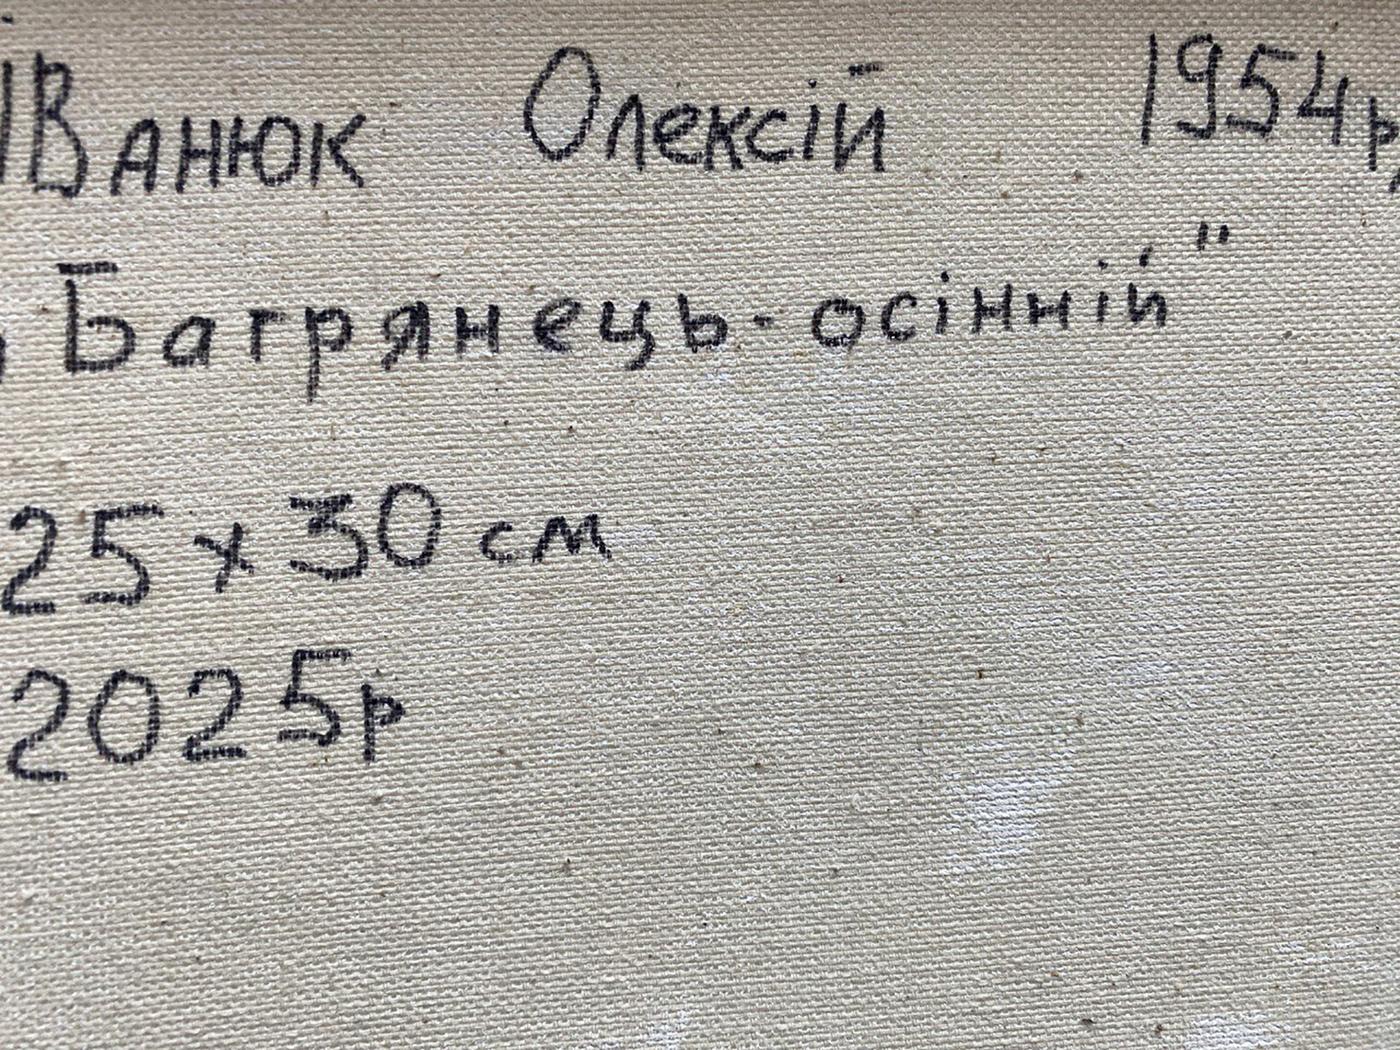 Іванюк Олексій 1954р,
„Багрянець-осінній"
25 х 30 см
2025р